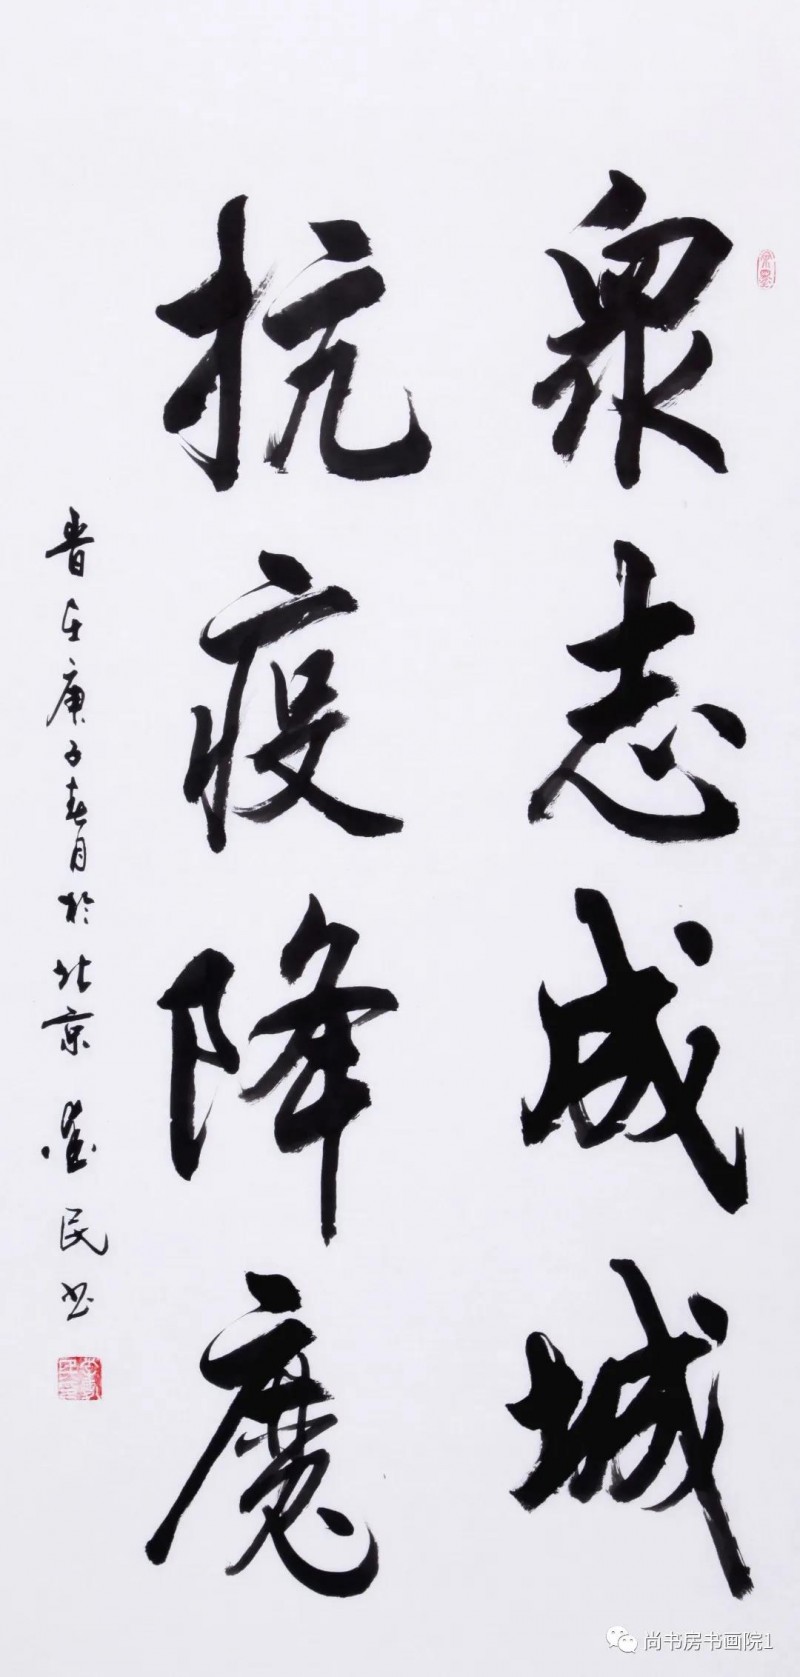 衆志成城
抗疫降魔
旹在庚子春月於北京 民书
尚书房书画院1